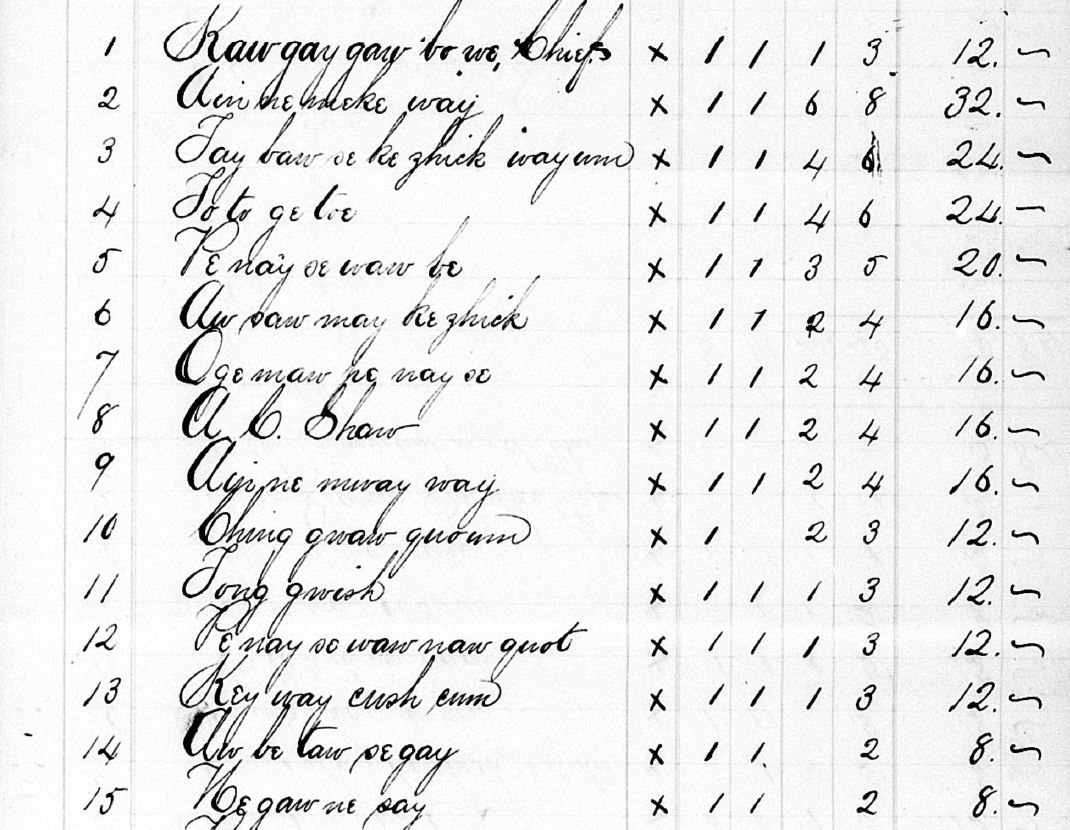 1 Kaw gay gaw bo we, Chiefs x 1 1 1 3 12. ~
2 Ain ne meke way x 1 1 6 8 32. ~
3 Tay baw se ke zhick way um x 1 1 4 6 24. ~
4 To to ge toe x 1 1 4 6 24. ~
5 Pe nay se waw be x 1 1 3 5 20. ~
6 Aw saw may ke zhick x 1 1 2 4 16. ~
7 Oge maw pe nay se x 1 1 2 4 16. ~
8 A C. Shaw x 1 1 2 4 16. ~
9 Ain ne mway way x 1 1 2 4 16. ~
10 Ching gwaw quo um x 1 2 3 12. ~
11 Tong gwish x 1 1 1 3 12. ~
12 Pe nay se waw naw quot x 1 1 1 3 12. ~
13 Key way cush cum x 1 1 1 3 12. ~
14 Aw be taw se gay x 1 1. 2 8. ~
15 Ne gaw ne say x 1 1 2 8. ~